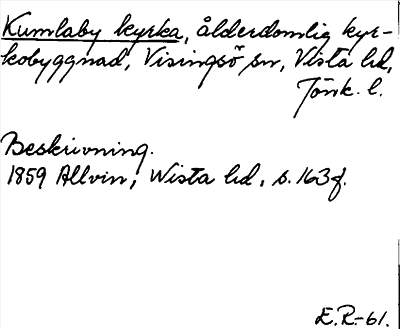 Kumlaby kyrka, ålderdomlig kyr-
kobyggnad, Visingsö sn, Vista hd,
Jönk. l.
Beskrivning.
1859 Allvin, Wista hd, s. 163 f.
E.R.-61.